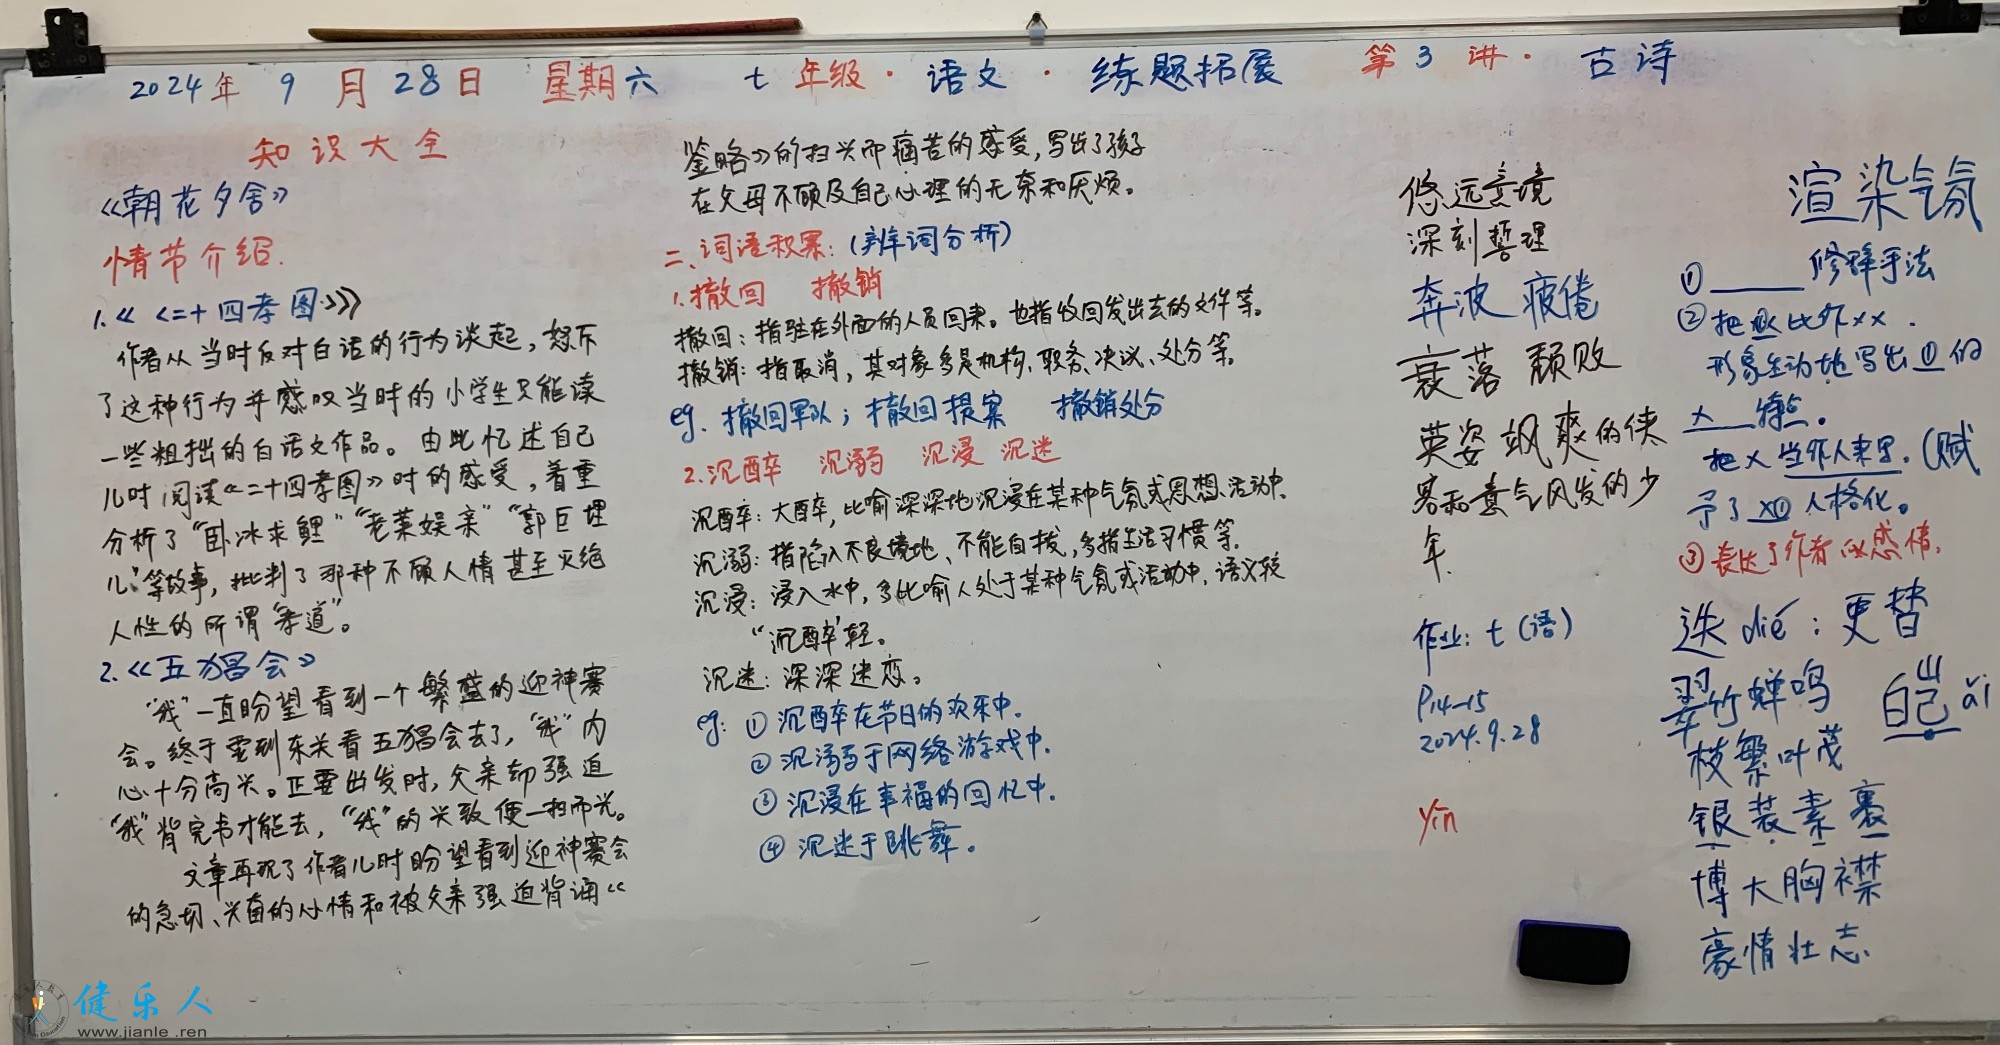 2024年 9 月 28日 星期六 七年级·语文·练题拓展 第3讲·古诗
知识大全
《朝花夕舍》
情节介绍.
1.《〈二十四孝图〉》
作者从当时反对白话的行为谈起,怒斥
了这种行为并感叹当时的小学生只能读
一些粗拙的白话文作品。由此忆述自己
儿时阅读《二十四孝图》时的感受,着重
分析了“卧冰求鲤”“老莱娱亲”“郭巨埋
儿”等故事,批判了那种不顾人情甚至灭绝
人性的所谓“孝道”。
2.《五猖会》
“我”一直盼望看到一个繁盛的迎神赛
会。终于要到东关看五猖会去了,“我”内
心十分高兴。正要出发时,父亲却强迫
“我”背完书才能去,“我”的兴致便一扫而光。
文章再现了作者儿时盼望看到迎神赛会
的急切、兴奋的心情和被父亲强迫背诵《
鉴略》的扫兴而痛苦的感受,写出了孩子
在父母不顾及自己心理的无奈和厌烦。
二、词语积累:(辨词分析)
1.撤回 撤销
撤回:指驻在外面的人员回来。也指收回发出去的文件等。
撤销:指取消,其对象多是机构、职务、决议、处分等。
eg. 撤回军队;撤回提案 撤销处分
2.沉醉 沉溺 沉浸 沉迷
沉醉:大醉,比喻深深地沉浸在某种气氛或思想、活动中.
沉溺:指陷入不良境地、不能自拔,多指生活习惯等.
沉浸:浸入水中,多比喻人处于某种气氛或活动中,语义较
“沉醉”轻。
沉迷:深深迷恋。
eg: ①沉醉在节日的欢乐中.
②沉溺于网络游戏中.
③沉浸在幸福的回忆中.
④沉迷于跳舞。
悠远意境
深刻哲理
奔波 疲倦
衰落 颓败
英姿飒爽的侠
客和意气风发的少
年.
作业:七(语)
P14-15
2024.9.28
yīn
渲染气氛
①____修辞手法
②把 比作××.
形象生动地写出①的
×__特点。
把×当作人来写.(赋
予了×① 人格化。
③表达了作者 感情.
迭 dié:更替
翠竹蝉鸣
皑 ái
枝繁叶茂
银装素裹
博大胸襟
豪情壮志.
健乐人
www.jianle.ren